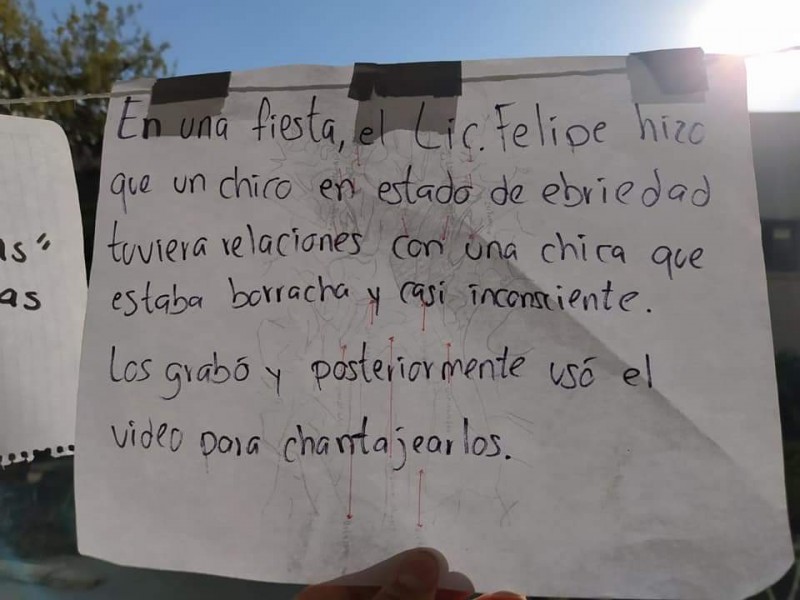 En una fiesta, el Lic. Felipe hizo
que un chico en estado de ebriedad
tuviera relaciones con una chica que
estaba borracha y casi inconsciente.
Los grabó y posteriormente usó el
video para chantajearlos.
as"
as